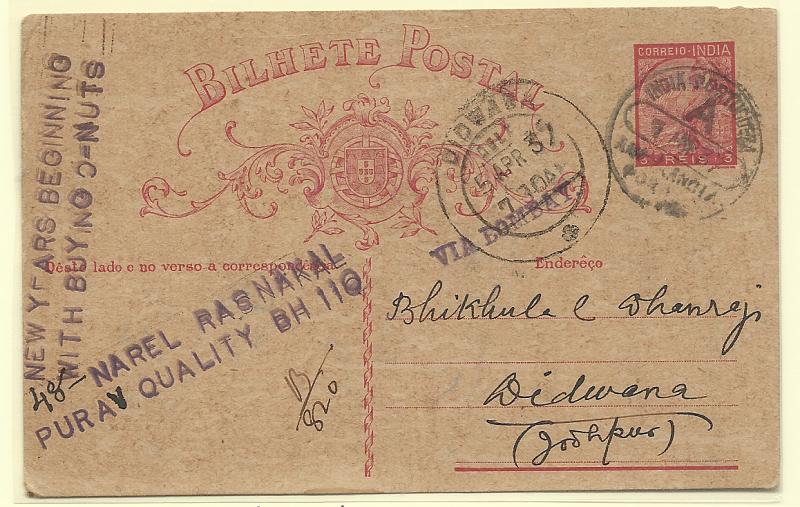 BILHETE POSTAL
CORREIO-INDIA
3 REIS 3
INDIA PORTUGUEZA
DIDWANA
5 APR 37
7.30AM
VIA BOMBAY
NEW YEARS BEGINNING
WITH BUYING O-NUTS
Dêste lado e no verso a correspondência
Endereço
48- NAREL RASNAKAL
PURAV QUALITY BH 110
B/820
Bhikhulal Dhanraj
Didwana
(Jodhpur)